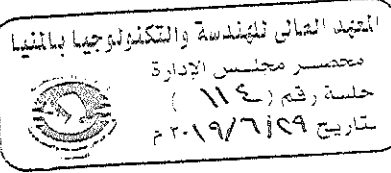 المعهد العالى للهندسة والتكنولوجيا بالمنيا
محضر مجلس الإدارة
جلسة رقم ( ١١٤ )
بتاريخ ٢٠١٩/٦/٢٩ م